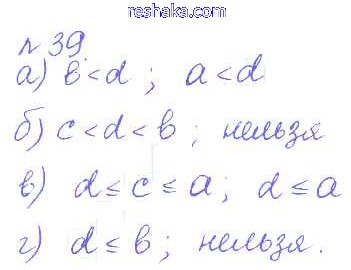 reshaka.com
№ 39
а) в < d ; a < d
б) c < d < в ; нельзя
в) d ≤ c ≤ a ; d ≤ a
г) d ≤ в ; нельзя.